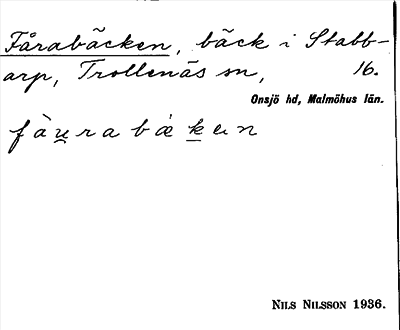 Fårabäcken, bäck i Stabb-
arp, Trollenäs sn, 16.
Onsjö hd, Malmöhus län.
fàu̯rabáḵen
NILS NILSSON 1936.